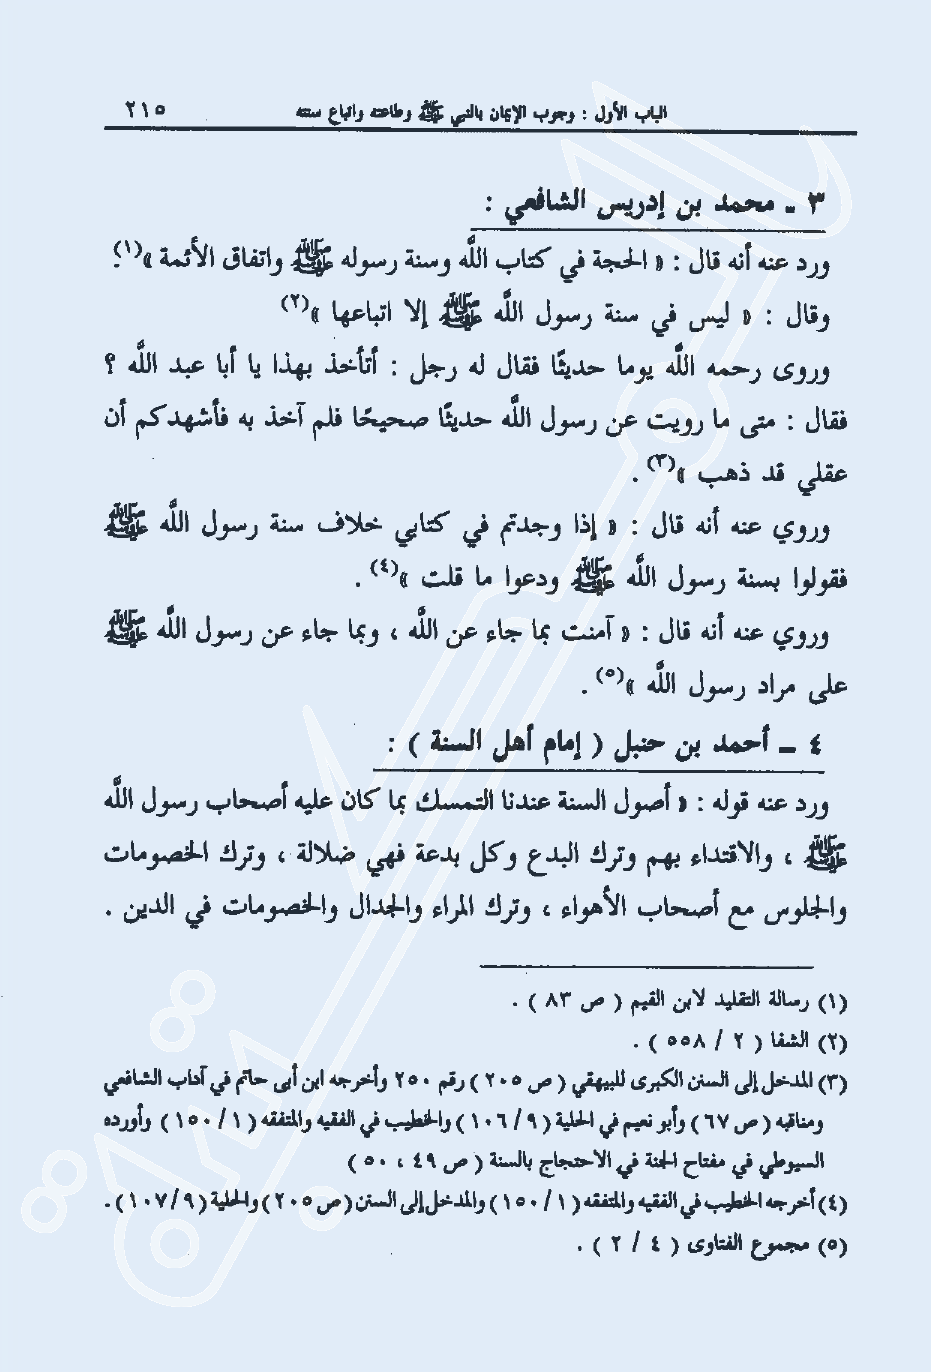 الباب الأول : وجوب الإيمان بالنبي ﷺ وطاعته واتباع سنته ٢١٥
٣ ـ محمد بن إدريس الشافعي :
ورد عنه أنه قال : « الحجة في كتاب اللَّه وسنة رسوله ﷺ واتفاق الأئمة »(١).
وقال : « ليس في سنة رسول اللَّه ﷺ إلا اتباعها »(٢)
وروى رحمه اللَّه يوما حديثًا فقال له رجل : أتأخذ بهذا يا أبا عبد اللَّه ؟
فقال : متى ما رويت عن رسول اللَّه حديثًا صحيحًا فلم آخذ به فأشهدكم أن
عقلي قد ذهب »(٣) .
وروي عنه أنه قال : « إذا وجدتم في كتابي خلاف سنة رسول اللَّه ﷺ
فقولوا بسنة رسول اللَّه ﷺ ودعوا ما قلت »(٤) .
وروي عنه أنه قال : « آمنت بما جاء عن اللَّه ، وبما جاء عن رسول اللَّه ﷺ
على مراد رسول اللَّه »(٥) .
٤ ـ أحمد بن حنبل ( إمام أهل السنة ) :
ورد عنه قوله : « أصول السنة عندنا التمسك بما كان عليه أصحاب رسول اللَّه
ﷺ ، والاقتداء بهم وترك البدع وكل بدعة فهي ضلالة ، وترك الخصومات
والجلوس مع أصحاب الأهواء ، وترك المراء والجدال والخصومات في الدين .
(١) رسالة التقليد لابن القيم ( ص ٨٣ ) .
(٢) الشفا ( ٢ / ٥٥٨ ) .
(٣) المدخل إلى السنن الكبرى للبيهقي ( ص ٢٠٥ ) رقم ٢٥٠ وأخرجه ابن أبى حاتم في آداب الشافعي
ومناقبه ( ص ٦٧ ) وأبو نعيم في الحلية ( ٩ / ١٠٦ ) والخطيب في الفقيه والمتفقه ( ١ / ١٥٠ ) وأورده
السيوطي في مفتاح الجنة في الاحتجاج بالسنة ( ص ٤٩ ، ٥٠ )
(٤) أخرجه الخطيب في الفقيه والمتفقه ( ١ / ١٥٠ ) والمدخل إلى السنن ( ص ٢٠٥ ) والحلية ( ٩ / ١٠٧ ) .
(٥) مجموع الفتاوى ( ٤ / ٢ ) .